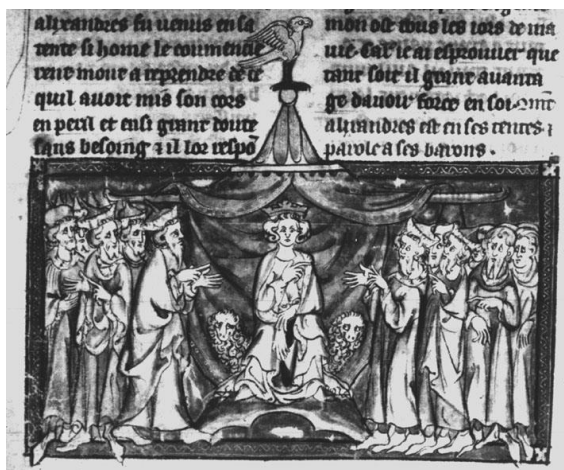 alixandres fu uenus en sa
tente si home le commencie
rent mout a reprendre de ce
quil auoit mis son cors
en peril et ensi grant doute
sans besoing ⁊ il lor respõ
mon ost tous les iors de ma
uie. Car ie ai esprouuer que
tant soit il grant auanta
ge dauoir force en soi.
alixandres est en ses tentes ⁊
parole a ses barons.